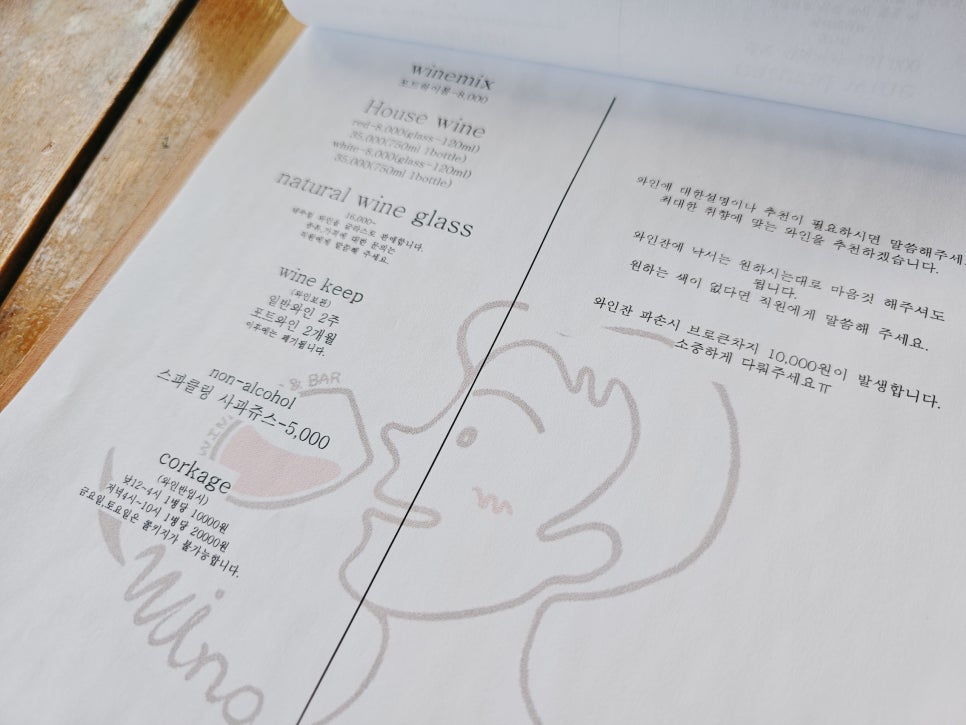 winemix
포트와이풍-8,000
House wine
red-8,000(glass-120ml)
35,000(750ml 1bottle)
white-8,000(glass-120ml)
35,000(750ml 1bottle)
natural wine glass
16,000~
와인을 글라스로 판매합니다.
종류,가격에 대한 문의는
직원에게 말씀해 주세요.
wine keep
(와인보관)
일반와인 2주
포트와인 2개월
이후에는 폐기됩니다.
non-alcohol
스파클링 사과쥬스-5,000
corkage
(와인반입시)
낮12-4시 1병당 10000원
저녁4시-10시 1병당 20000원
금요일,토요일은 콜키지가 불가능합니다.
& BAR
Wino
와인에 대한설명이나 추천이 필요하시면 말씀해주세
최대한 취향에 맞는 와인을 추천하겠습니다.
와인잔에 낙서는 원하시는대로 마음껏 해주셔도
됩니다.
원하는 색이 없다던 직원에게 말씀해 주세요.
와인잔 파손시 브로큰차지 10,000원이 발생합니다.
소중하게 다뤄주세요ㅠ